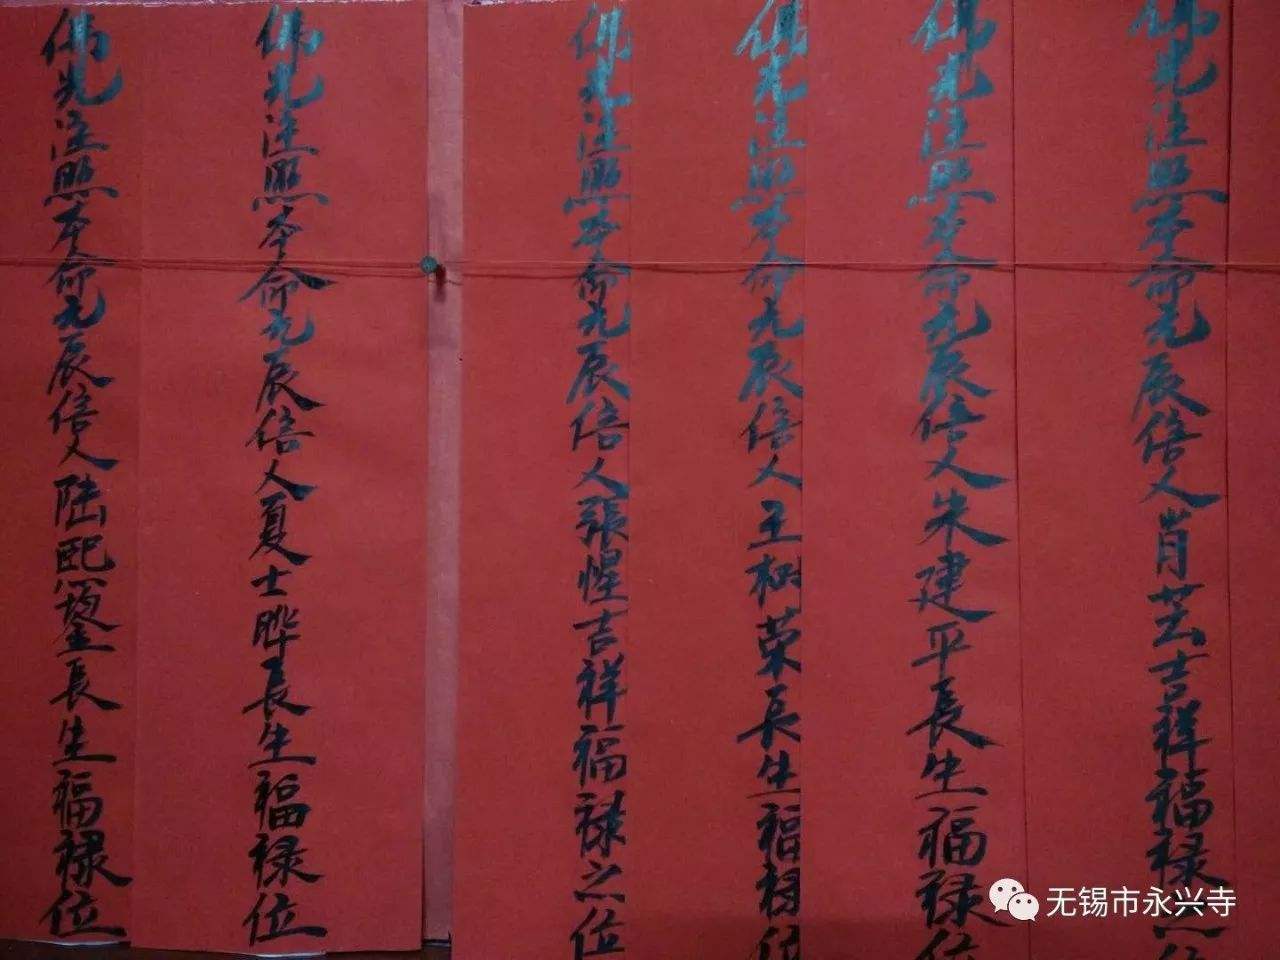 佛光注照本命元辰信人肖芸吉祥福禄之位
佛光注照本命元辰信人朱建平長生福禄位
佛光注照本命元辰信人王树荣長生福禄位
佛光注照本命元辰信人張惺吉祥福禄之位
佛光注照本命元辰信人夏士晔長生福禄位
佛光注照本命元辰信人陆熙鋆長生福禄位
无锡市永兴寺